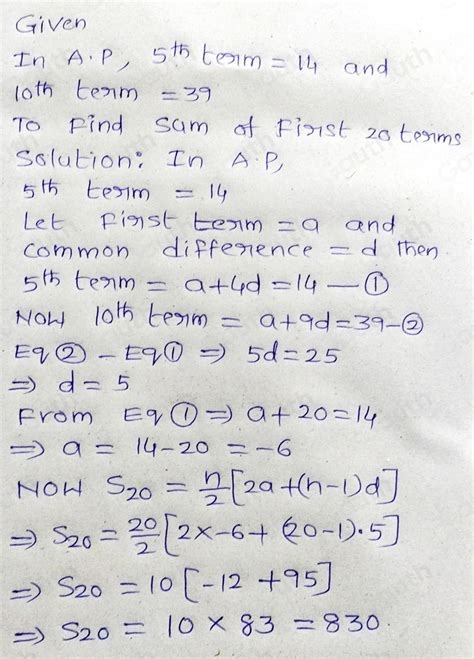 Given
In A.P, 5th term = 14 and
10th term = 39
To Find Sum of First 20 terms
Solution: In A.P,
5th term = 14
Let First term = a and
common difference = d then
5th term = a+4d = 14 — ①
NOW 10th term = a+9d = 39 – ②
Eq ② – Eq ① ⇒ 5d = 25
⇒ d = 5
From Eq ① ⇒ a + 20 = 14
⇒ a = 14 - 20 = -6
NOW S₂₀ = n/2 [2a+(n-1)d]
⇒ S₂₀ = 20/2 [2×-6+(20-1)·5]
⇒ S₂₀ = 10 [-12 + 95]
⇒ S₂₀ = 10 × 83 = 830.